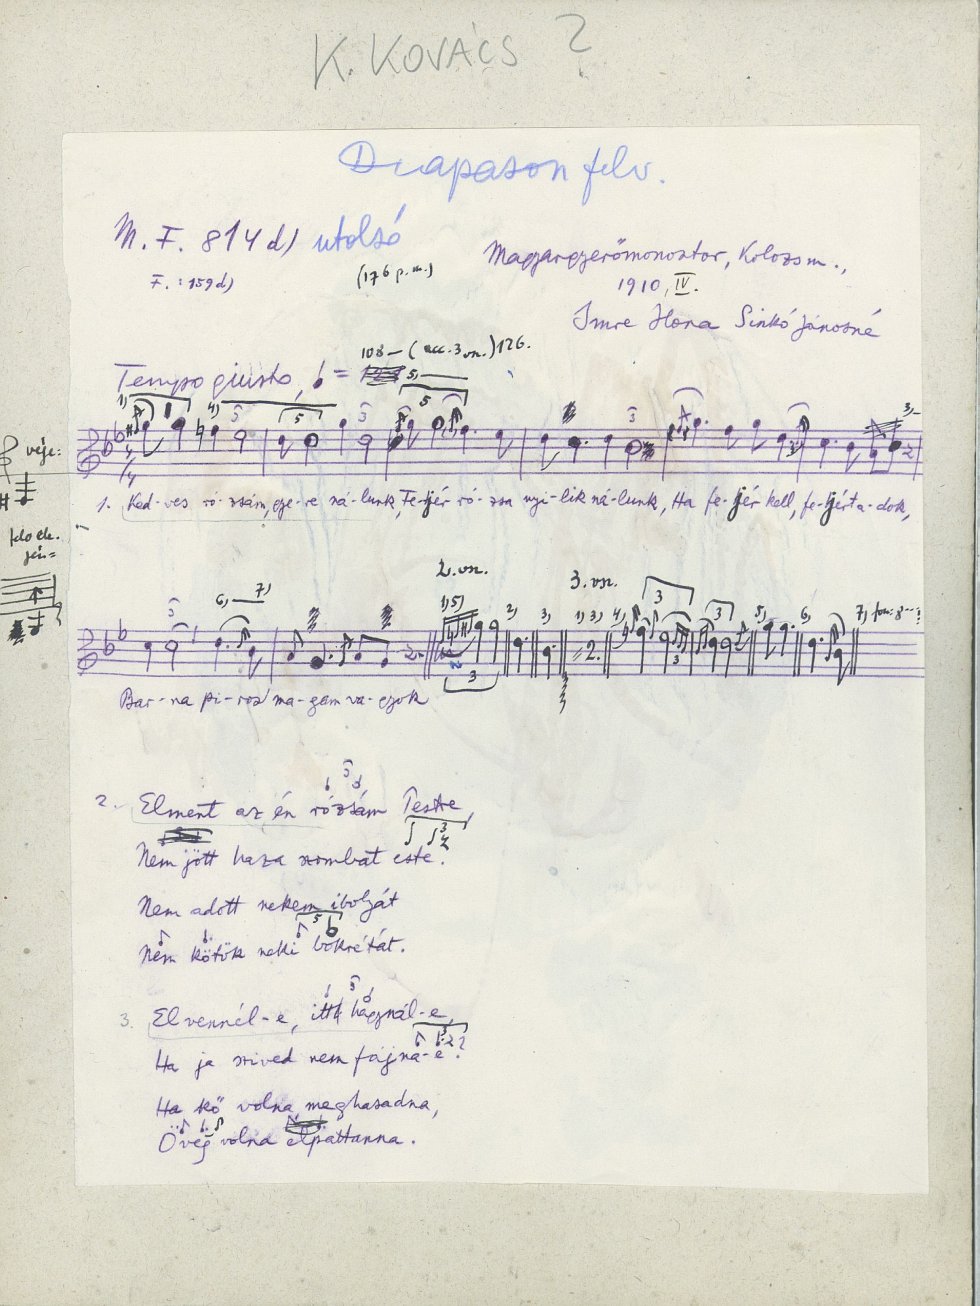 K. KOVÁCS ?
Diapason felv.
M. F. 814 d) utolsó
F.: 159 d)
(176 p.m.)
Magyargyerőmonostor, Kolozsm.,
1910, IV.
Imre Ilona Sinkó Jánosné
108 – (acc. 3 vn.) 126.
Tempo giusto, =
vége:
1. Ked-ves ró-zsám, gye-re ná-lunk, Fe-jér ró-zsa nyi-lik ná-lunk, Ha fe-jér kell, fe-jért a-dok,
2. vsz.
3. vsz.
Bar-na pi-ros ma-gam va-gyok
2. Elment az én rózsám Teste,
Nem jött haza szombat este.
Nem adott nekem ibolyát
Nem kötök neki bokrétát.
3. Elvennél-e, itt hagynál-e,
Ha ja szived nem fájna-e?
Ha kő volna, meghasadna,
Öveg volna elpattanna.